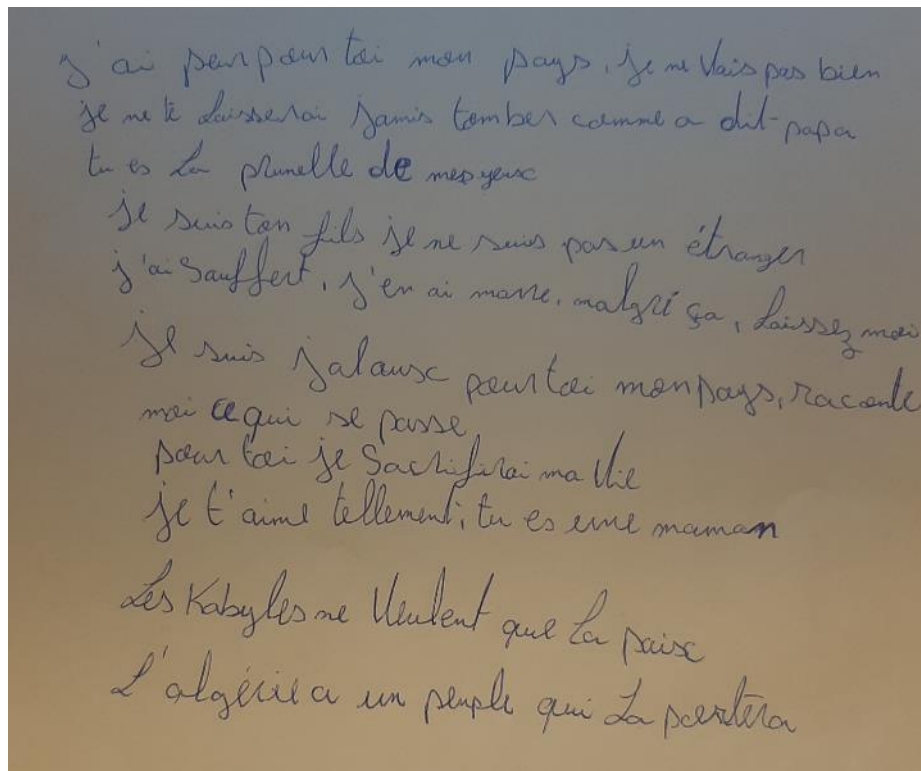 J'ai peur pour toi mon pays, je ne vais pas bien
je ne te laisserai jamis tomber comme a dit-papa
tu es la prunelle de mes yeux
je suis ton fils je ne suis pas un étranger
j'ai souffert, j'en ai marre, malgré ça, laissez moi
je suis jaloux pour toi mon pays, raconte
moi ce qui se passe
pour toi je sacrifirai ma vie
je t'aime tellement, tu es une maman
Les Kabyles ne veulent que la paix
L'algérie a un peuple qui la portera